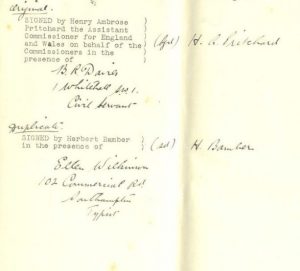 Original.
SIGNED by Henry Ambrose
Pritchard the Assistant
Commissioner for England
and Wales on behalf of the
Commissioners in the
presence of
(sgd) H. A. Pritchard
B. R. Davies
1 Whitehall SW1.
Civil Servant
Duplicate.
SIGNED by Herbert Bamber
in the presence of
(sd) H Bamber
Ellen Wilkinson
102 Commercial Rd
Southampton
Typist